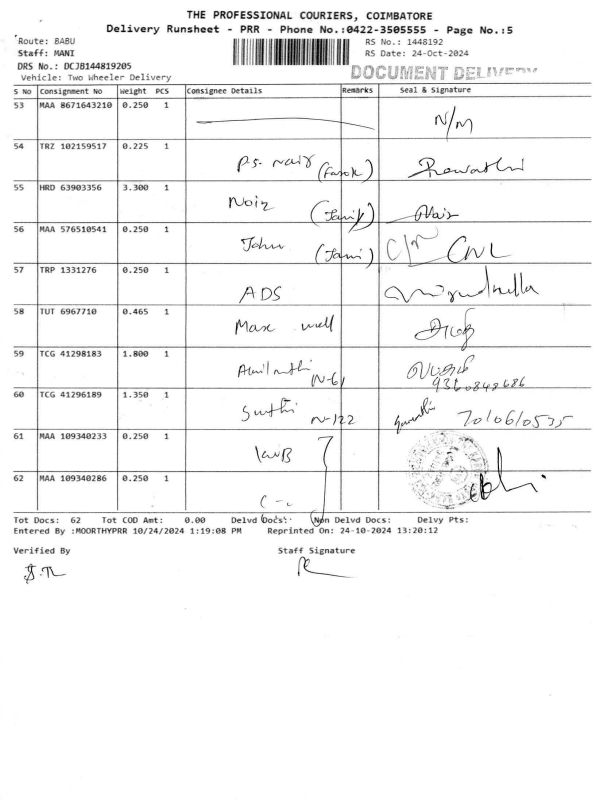 THE PROFESSIONAL COURIERS, COIMBATORE
Delivery Runsheet - PRR - Phone No.:0422-3505555 - Page No.:5
Route: BABU RS No.: 1448192
Staff: MANI RS Date: 24-Oct-2024
DRS No.: DCJB144819205
Vehicle: Two Wheeler Delivery DOCUMENT DELIVERY
S No Consignment No Weight PCS Consignee Details Remarks Seal & Signature
53 MAA 8671643210 0.250 1 N/M
54 TRZ 102159517 0.225 1 P.S. Nair
55 HRD 63903356 3.300 1 Nair
56 MAA 576510541 0.250 1 John
57 TRP 1331276 0.250 1 ADS
58 TUT 6967710 0.465 1 Max well
59 TCG 41298183 1.800 1 N-61
9360848686
60 TCG 41296189 1.350 1 N-122 7010610535
61 MAA 109340233 0.250 1
62 MAA 109340286 0.250 1
Tot Docs: 62 Tot COD Amt: 0.00 Delvd Docs: Non Delvd Docs: Delvy Pts:
Entered By :MOORTHYPRR 10/24/2024 1:19:08 PM Reprinted On: 24-10-2024 13:20:12
Verified By Staff Signature